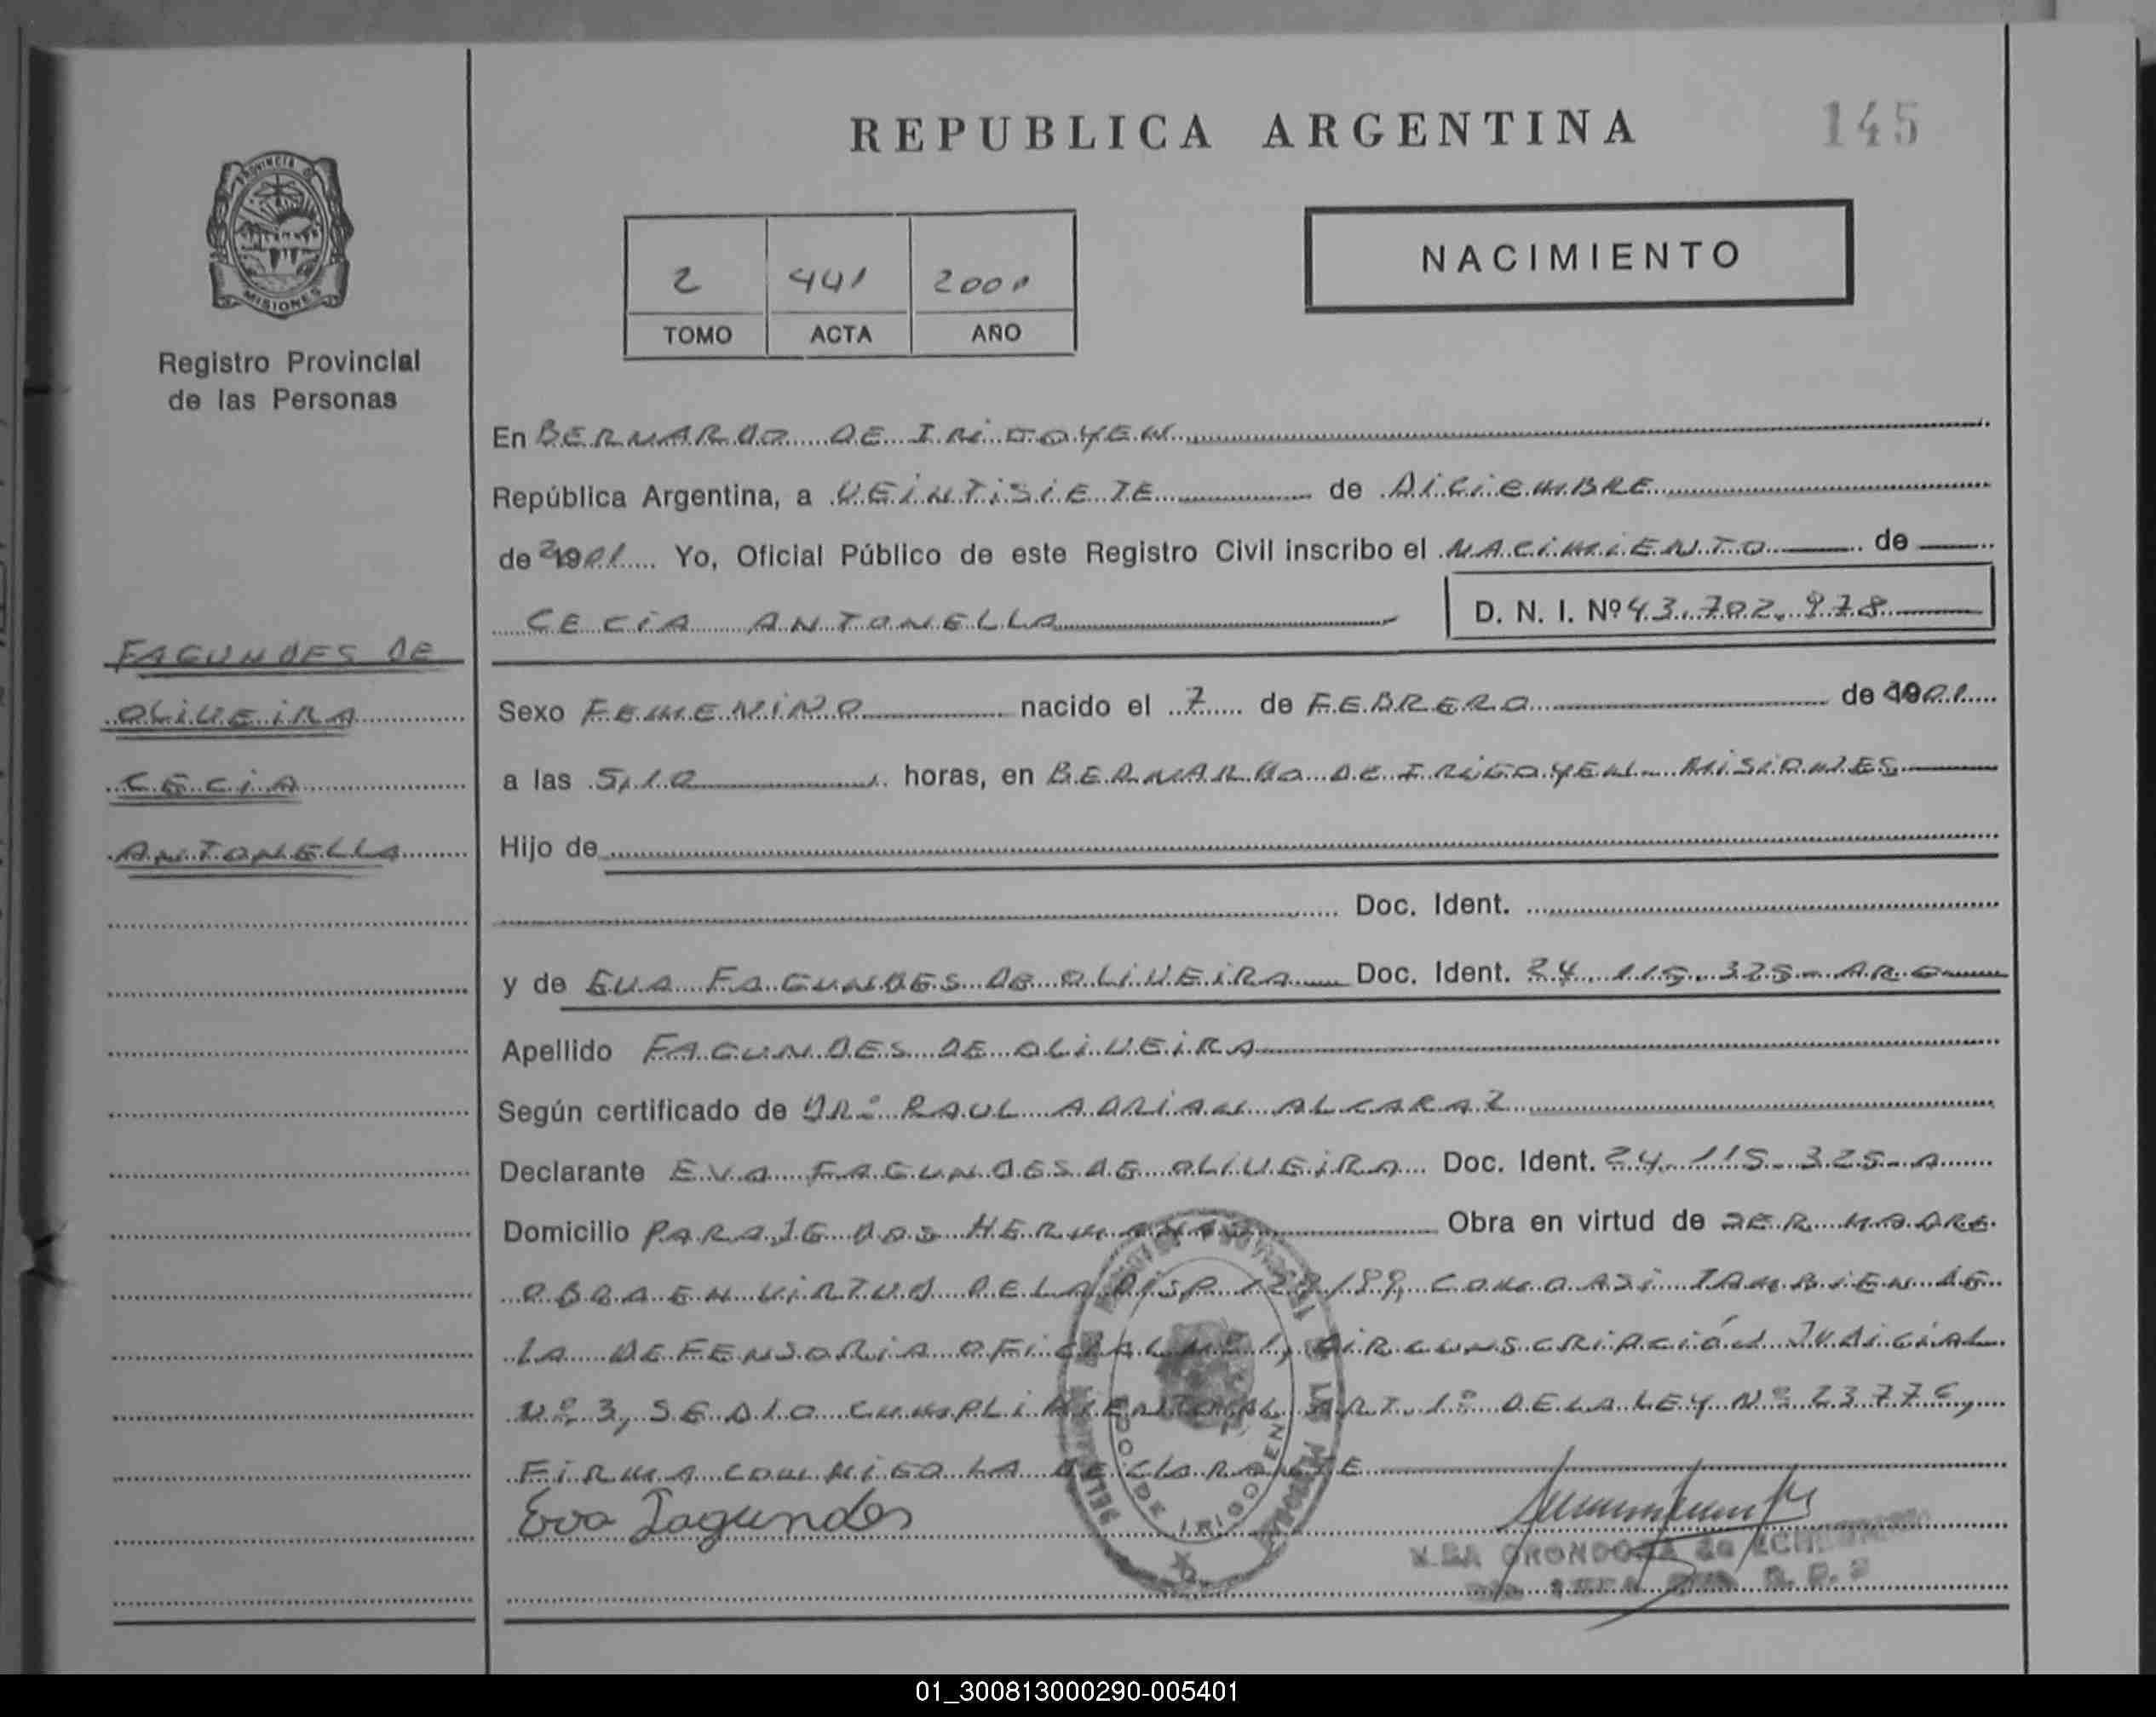 REPUBLICA ARGENTINA
145
PROVINCIA DE
MISIONES
Registro Provincial
de las Personas
2 441 2001
TOMO ACTA AÑO
NACIMIENTO
En BERNARDO DE IRIGOYEN
República Argentina, a VEINTISIETE de DICIEMBRE
de 2001 Yo, Oficial Público de este Registro Civil inscribo el NACIMIENTO de
CECIA ANTONELLA
D. N. I. Nº 43.702.978
FAGUNDES DE
OLIVEIRA
CECIA
ANTONELLA
Sexo FEMENINO nacido el 7 de FEBRERO de 2001
a las 5,10 horas, en BERNARDO DE IRIGOYEN MISIONES
Hijo de
Doc. Ident.
y de EVA FAGUNDES DE OLIVEIRA Doc. Ident. 24.115.325- ARG
Apellido FAGUNDES DE OLIVEIRA
Según certificado de DRº RAUL ADRIAN ALCARAZ
Declarante EVA FAGUNDES DE OLIVEIRA Doc. Ident. 24.115.325-A
Domicilio PARAJE DOS HERMANAS Obra en virtud de SER MADRE
OBRA EN VIRTUD DE LA DISP /99, COMO ASI TAMBIEN DE
LA DEFENSORIA OFICIAL Nº 1, CIRCUNSCRIPCIÓN JUDICIAL
Nº 3, SE DIO CUMPLIMIENTO AL ART. 1º DE LA LEY Nº 23776,
FIRMA CONMIGO LA DECLARANTE
Eva Fagundes
IRIGOYEN
01_300813000290-005401